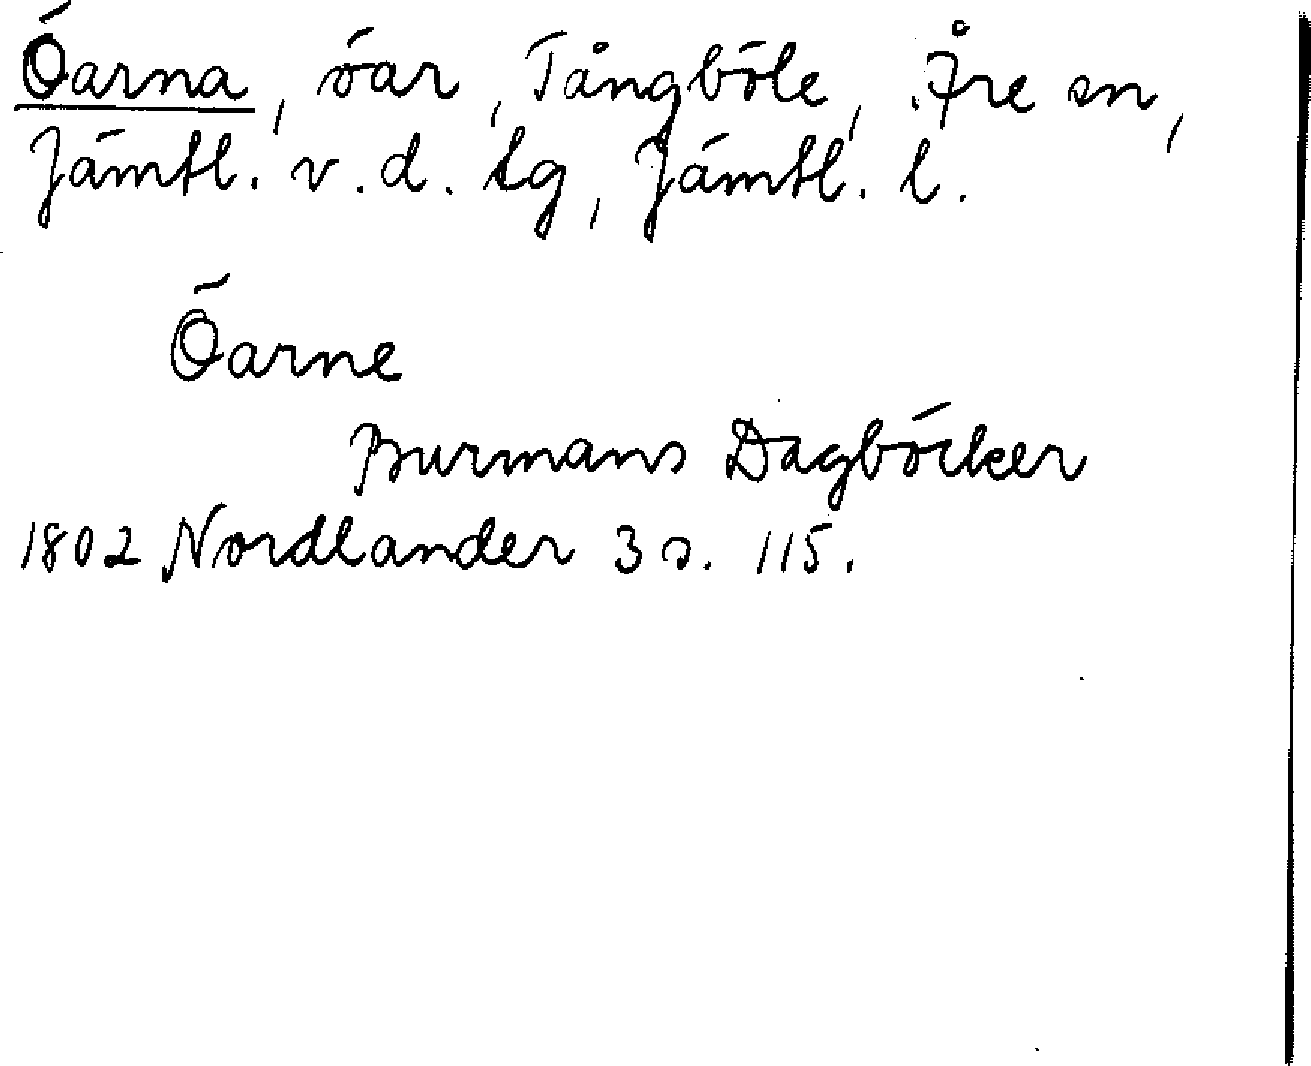 Öarna, öar, Tångböle, Åre sn,
Jämtl. v. d. tg, Jämtl. l.
Öarne
Burmans Dagböcker
1802 Nordlander 3 s. 115.